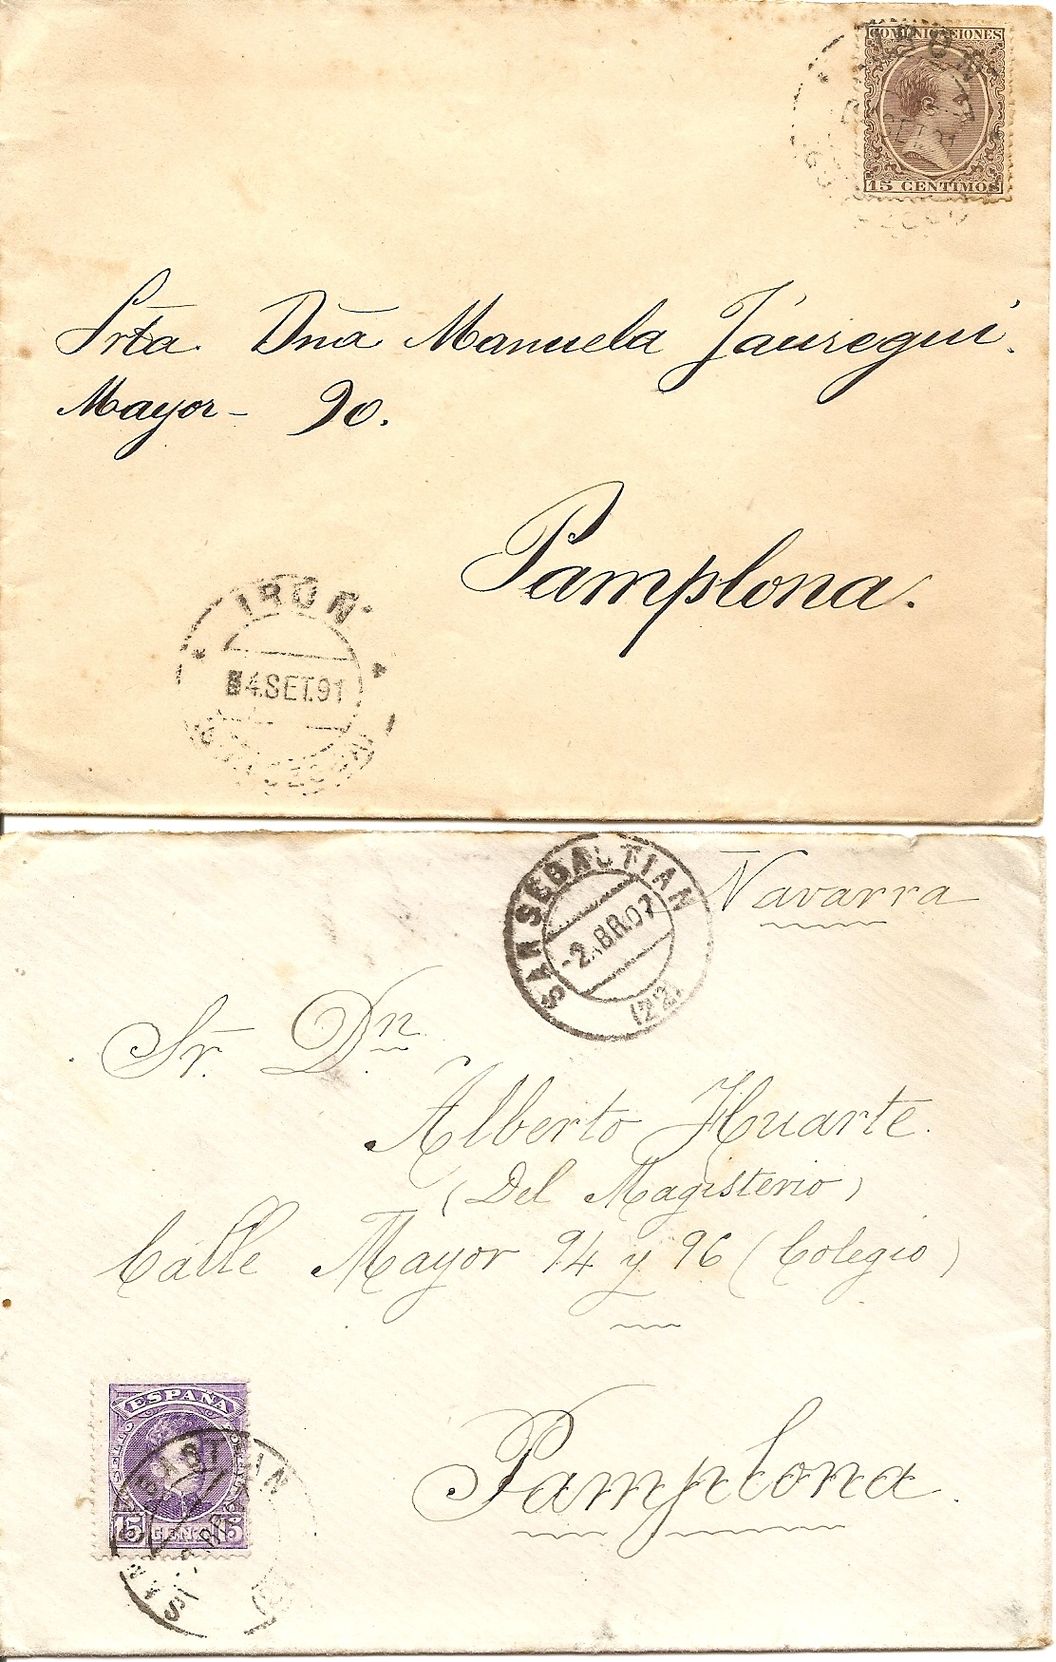 COMUNICACIONES
15 CENTIMOS
Srta. Dña Manuela Jáuregui.
Mayor - 90.
Pamplona.
IRUN
4.SET.91
SAN SEBASTIAN
-2.ABR.07
(22)
Navarra
Sr. Dn.
Alberto Huarte.
(Del Magisterio)
Calle Mayor 94 y 96 (Colegio)
ESPAÑA
15 CENT 15
SAN SEBASTIAN
Pamplona.